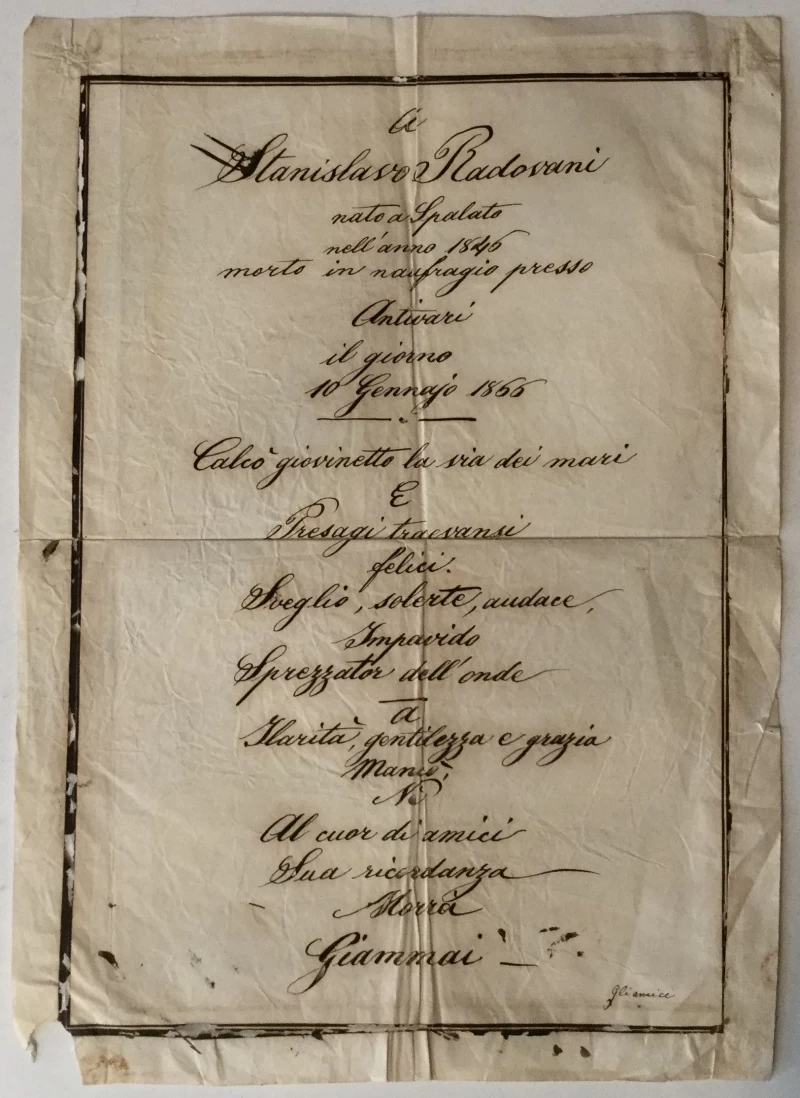 A
Stanislavo Radovani
nato a Spalato
nell'anno 1846
morto in naufragio presso
Antivari
il giorno
10 Gennajo 1866
Calcò giovinetto la via dei mari
E
Presagi traevansi
felici.
Sveglio, solerte, audace,
Impavido
Sprezzator dell'onde
A
Ilarità, gentilezza e grazia
Mancò;
Nè
Al cuor di amici
Sua ricordanza
Morrà
Giammai
gli amici